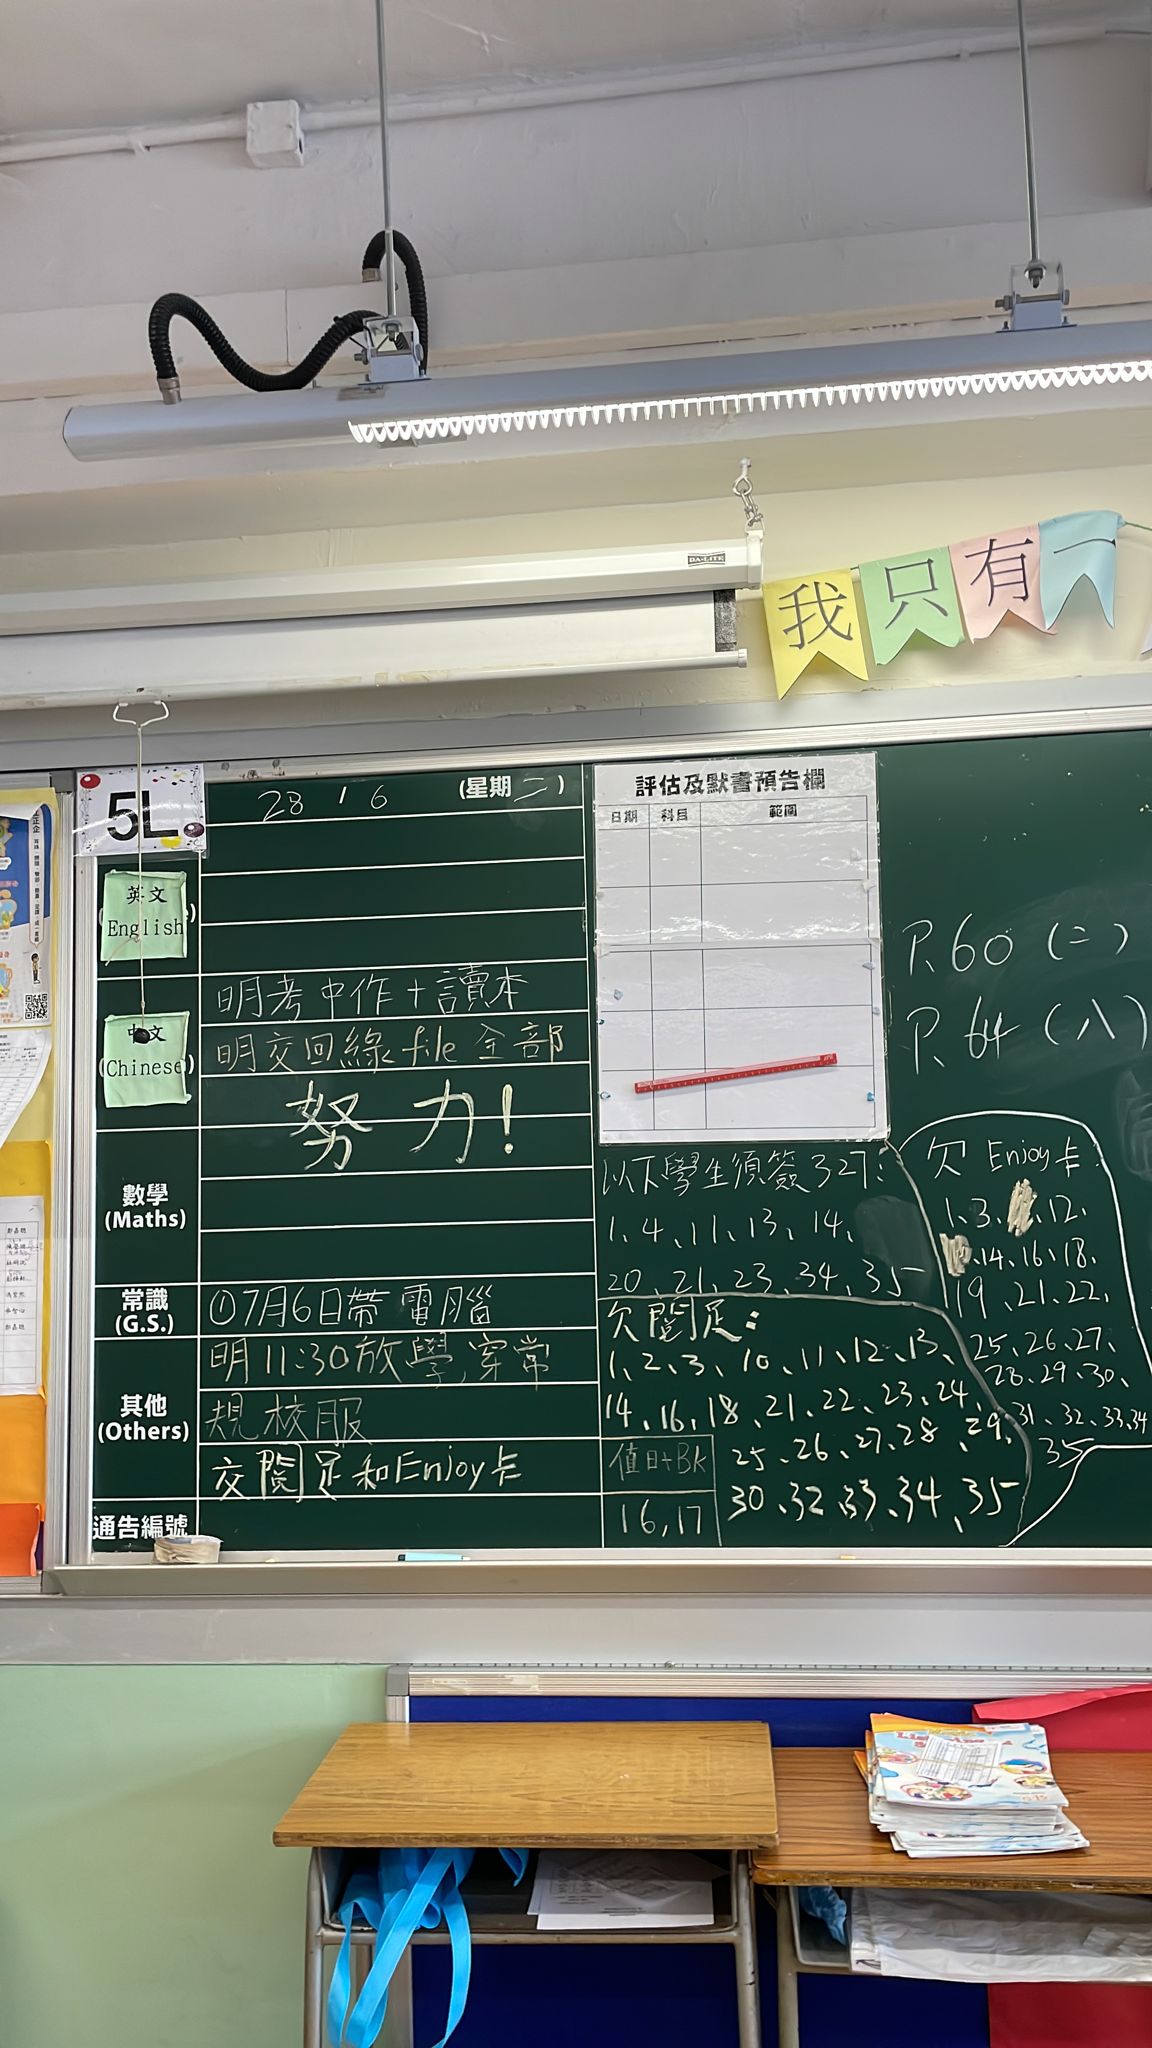 DA-LITE
我只有一
5L
28 / 6 (星期二)
英文
English
明考中作+讀本
中文
(Chinese)
明交回綠file全部
努力!
數學
(Maths)
常識
(G.S.)
①7月6日帶電腦
其他
(Others)
明11:30放學,穿常
規校服
交閱足和Enjoy卡
通告編號
評估及默書預告欄
日期 科目 範圍
以下學生須簽327:
1、4、11、13、14、
20、21、23、34、35
欠閱足:
1、2、3、10、11、12、13、
14、16、18、21、22、23、24、
25、26、27、28、29、
30、32、33、34、35
值日+Bk
16,17
P.60(二)
P.64(八)
欠 Enjoy卡:
1、3、、12、
、14、16、18、
19、21、22、
25、26、27、
28、29、30、
31、32、33、34
35